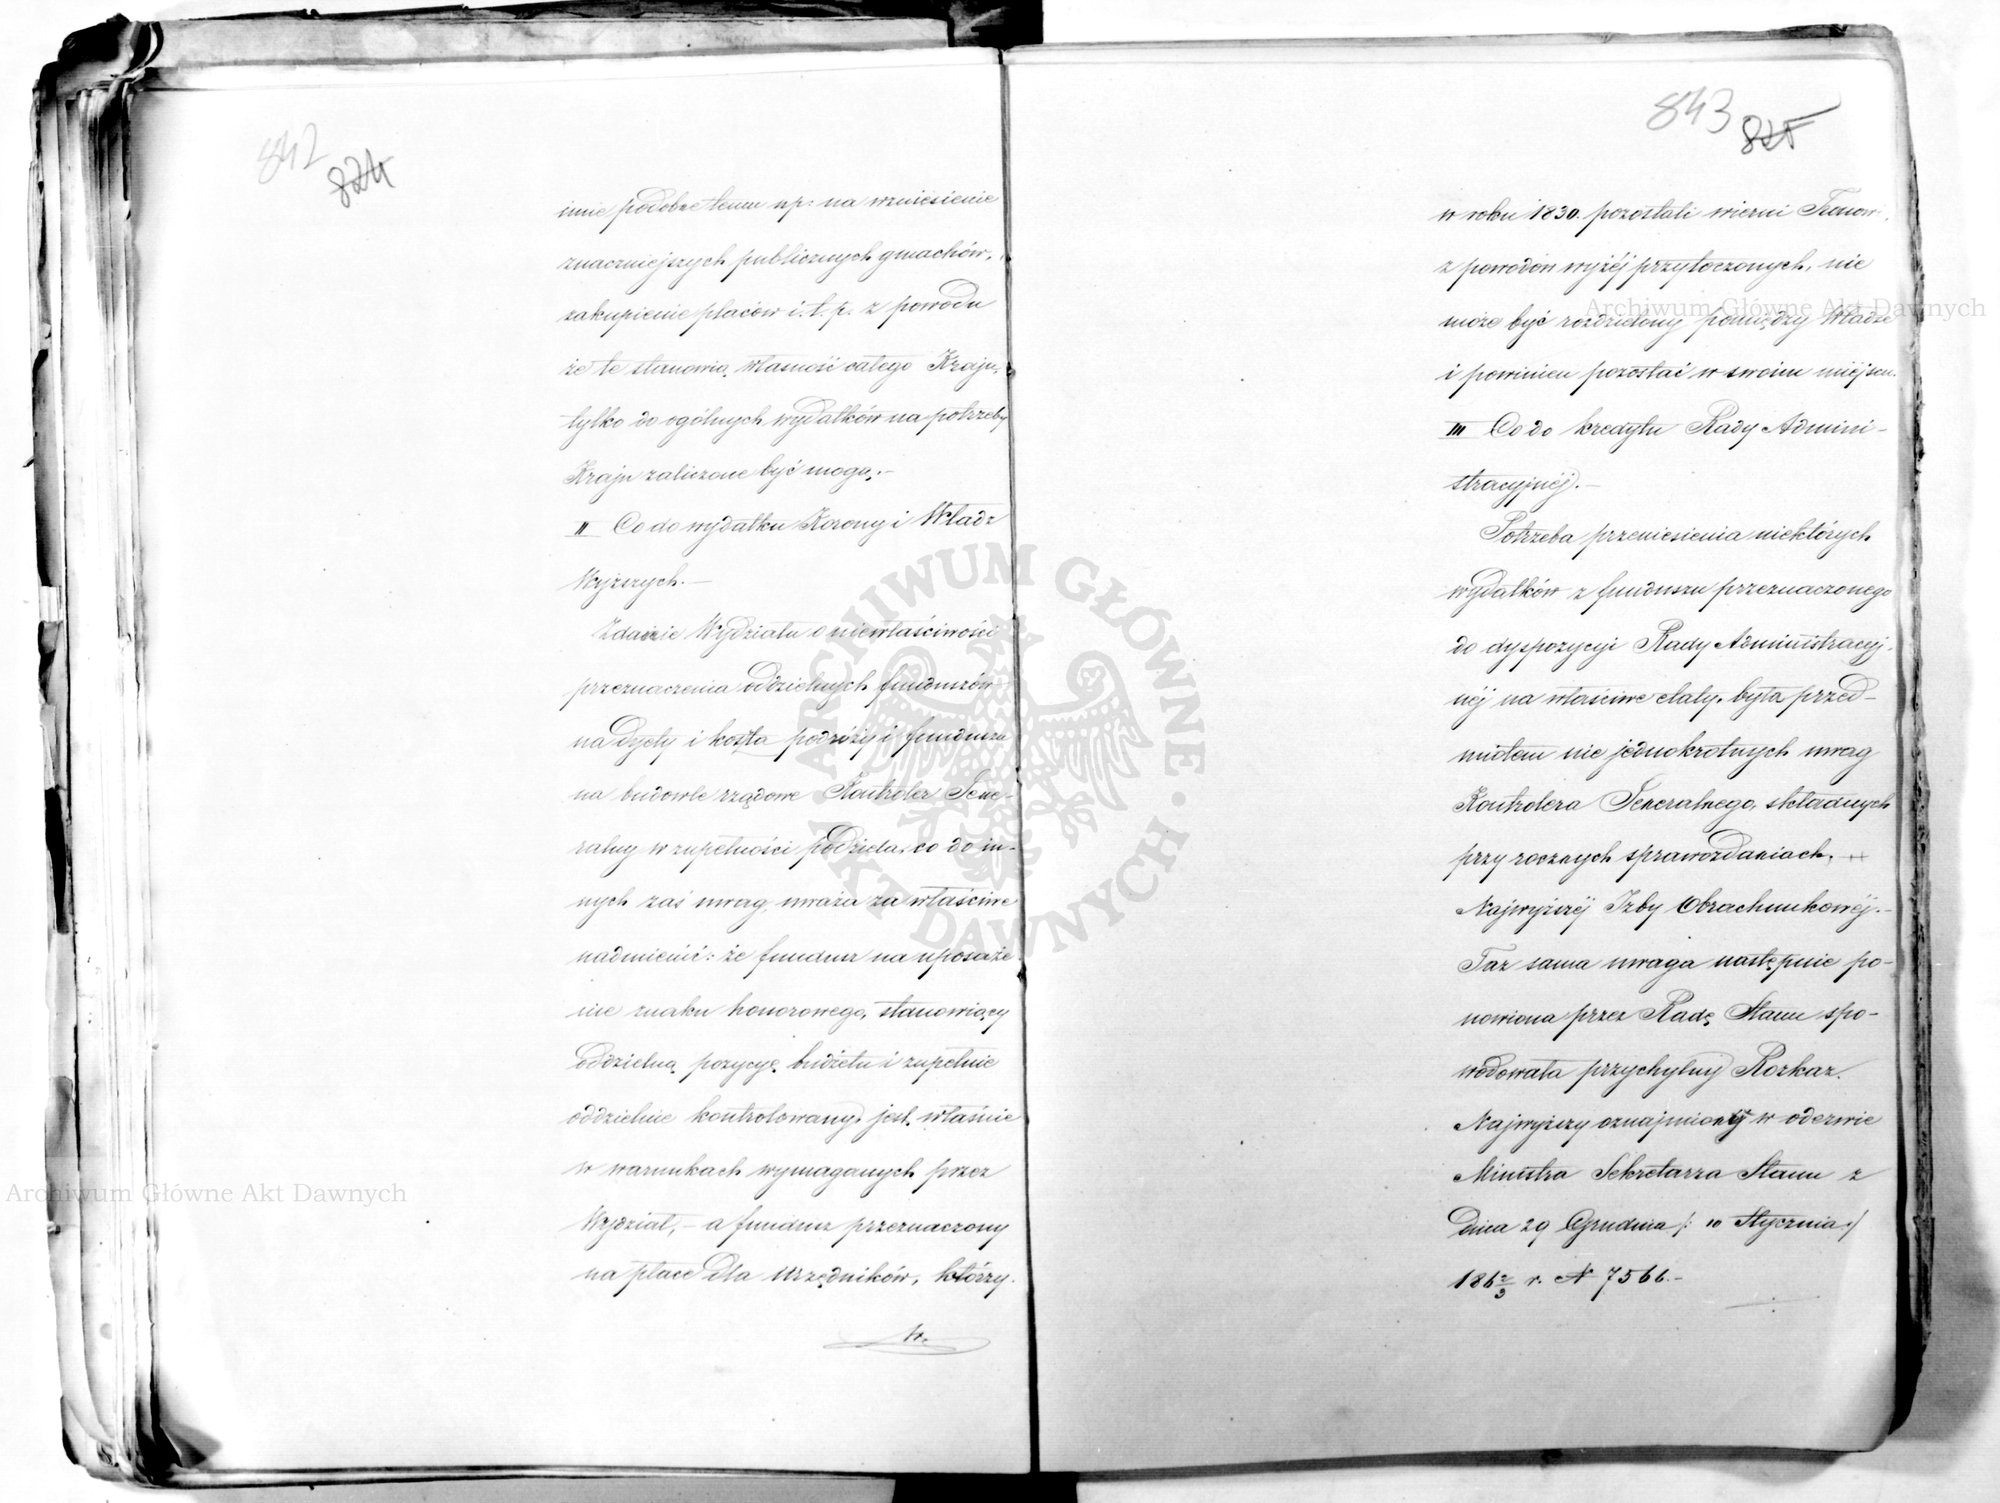 842
824
innie podobne temu np: na wzniesienie
znaczniejszych publicznych gmachów,
zakupienie placów i.t.p. z powodu
że te stanowią własność całego Kraju,
tylko do ogólnych wydatków na potrzeby
Kraju zaliczone być mogą.—
II Co do wydatku Korony i Władz
Wyższych.—
Zdanie Wydziału o niewłaściwości
przeznaczenia oddzielnych funduszów
na dyety i koszta podróży i funduszu
na budowle rządowe Kontroler Gene-
ralny w zupełności podziela, co do in-
nych zaś uwag, uważa za właściwe
nadmienić: że fundusz na uposaże
nie znaku honorowego, stanowiący
oddzielną pozycyę budżetu i zupełnie
oddzielnie kontrolowany, jest właśnie
w warunkach wymaganych przez
Wydział,— a fundusz przeznaczony
na płace dla urzędników, którzy
w.
843
825
w roku 1830. pozostali wierni Tronowi,
z powodów wyżéj przytoczonych, nie
może być rozdzielony pomiędzy Władze
i powinien pozostać w swoim miéjscu.
III Co do kredytu Rady Admini-
stracyjnéj.—
Potrzeba przeniesienia niektórych
wydatków z funduszu przeznaczonego
do dyspozycyi Rady Administracyj-
néj na właściwe etaty, była przed-
miotem nie jednokrotnych uwag
Kontrolera Generalnego, składnych
przy rocznych sprawozdaniach.
Najwyższéj Izby Obrachunkowéj.—
Taż sama uwaga następnie po-
nowiona przez Radę Stanu spo-
wodowała przychylny Rozkaz
Najwyższy oznajmiony w odezwie
Ministra Sekretarza Stanu z
dnia 29 Grudnia /: 10 Stycznia:/
186 2/3 r. N 7566.—
Archiwum Główne Akt Dawnych
Archiwum Główne Akt Dawnych
ARCHIWUM GŁÓWNE · AKT DAWNYCH ·